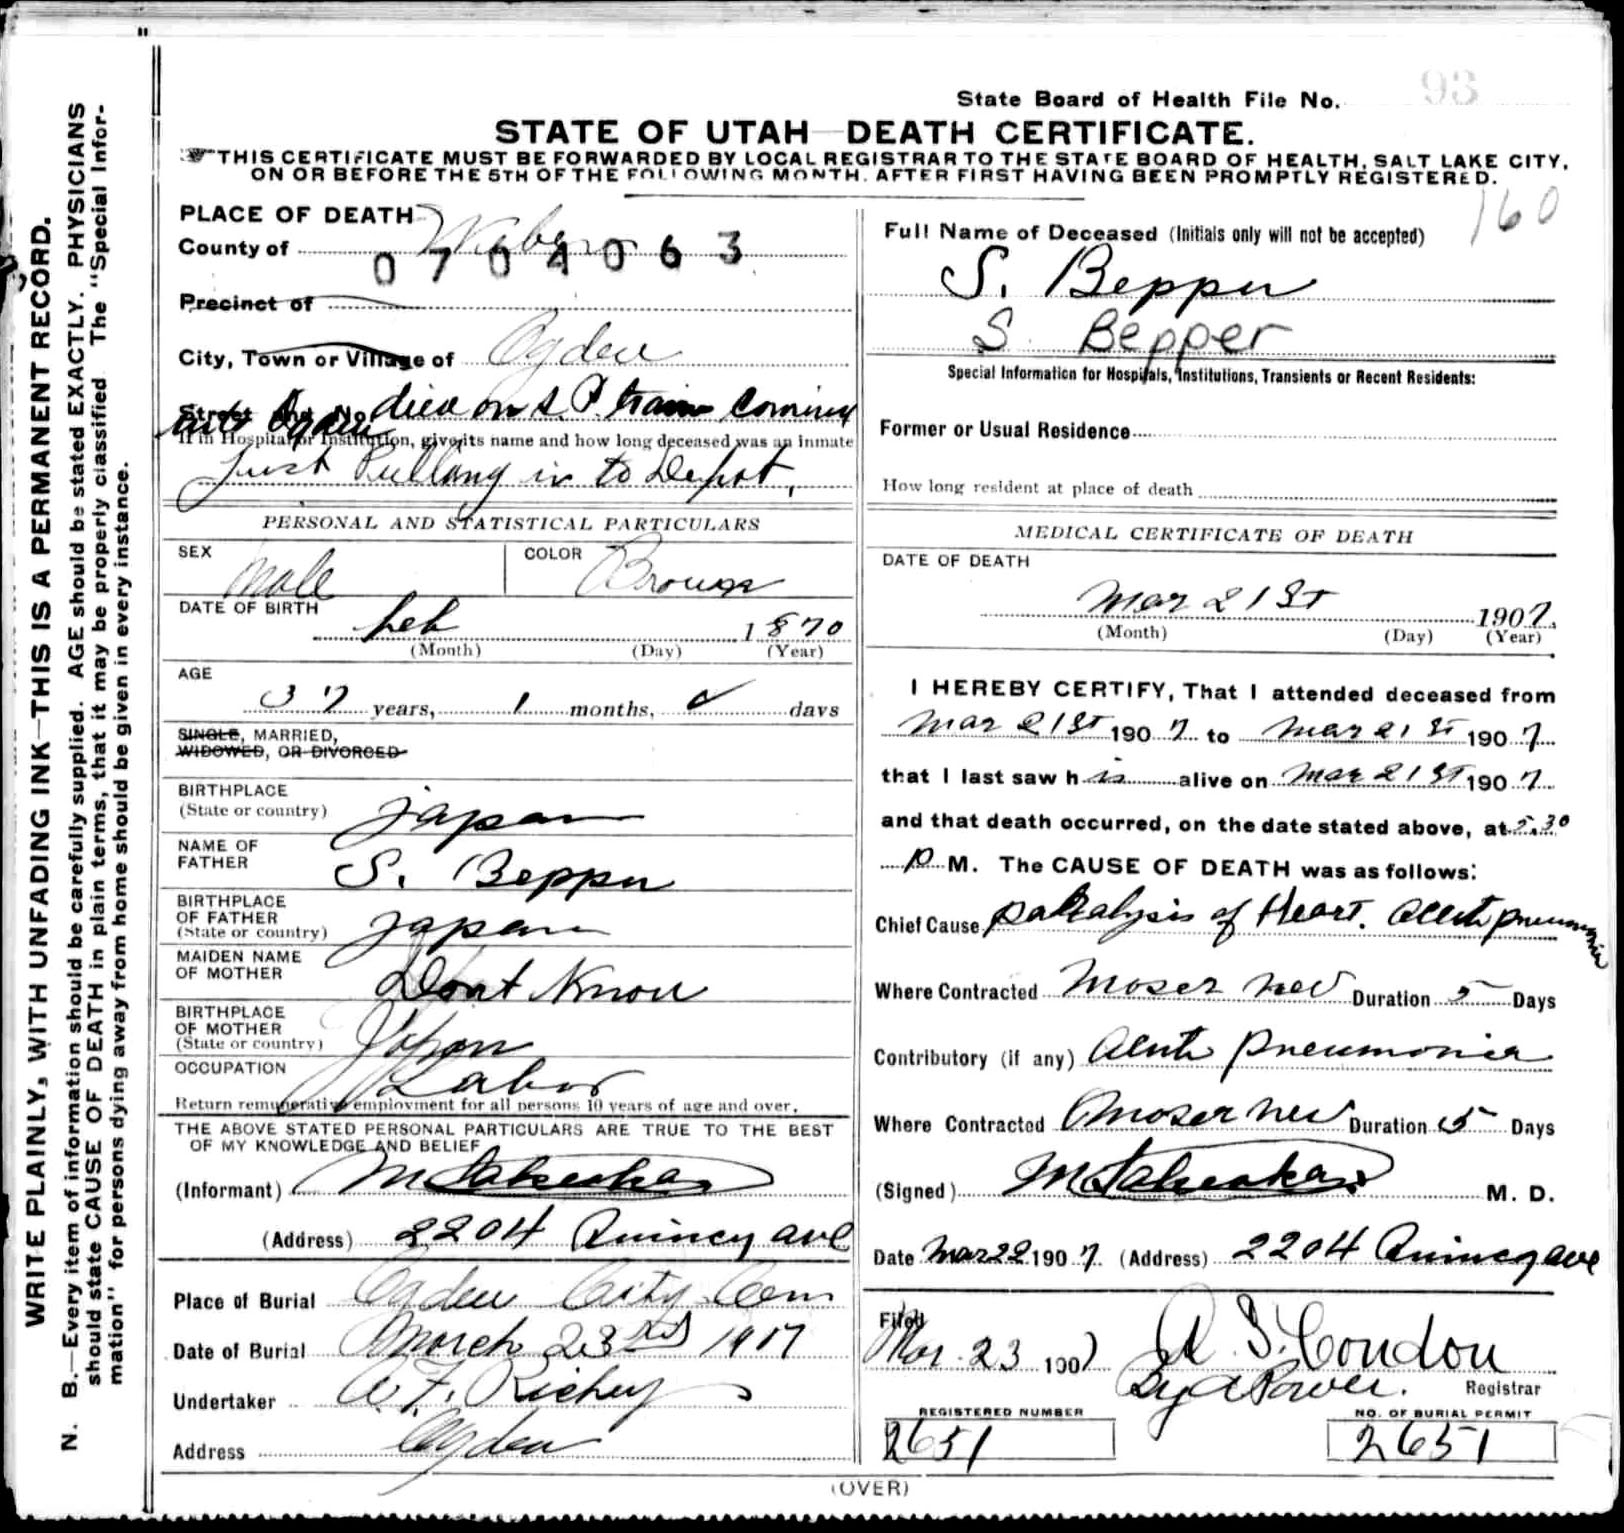 WRITE PLAINLY, WITH UNFADING INK—THIS IS A PERMANENT RECORD.
N. B.—Every item of information should be carefully supplied. AGE should be stated EXACTLY. PHYSICIANS
should state CAUSE OF DEATH in plain terms, that it may be properly classified. The "Special Infor-
mation" for persons dying away from home should be given in every instance.
State Board of Health File No. 93
STATE OF UTAH—DEATH CERTIFICATE.
THIS CERTIFICATE MUST BE FORWARDED BY LOCAL REGISTRAR TO THE STATE BOARD OF HEALTH, SALT LAKE CITY,
ON OR BEFORE THE 5TH OF THE FOLLOWING MONTH, AFTER FIRST HAVING BEEN PROMPTLY REGISTERED.
160
PLACE OF DEATH
County of Weber
0704063
Precinct of
City, Town or Village of Ogden
Street and No. died on S. P. train coming
into Ogden
If in Hospital or Institution, give its name and how long deceased was an inmate
Just Pulling in to Depot,
PERSONAL AND STATISTICAL PARTICULARS
SEX Male COLOR Brown
DATE OF BIRTH
Feb 1870
(Month) (Day) (Year)
AGE
37 years, 1 months, days
SINGLE, MARRIED,
WIDOWED, OR DIVORCED
BIRTHPLACE
(State or country) Japan
NAME OF
FATHER S. Beppu
BIRTHPLACE
OF FATHER
(State or country) Japan
MAIDEN NAME
OF MOTHER Dont Know
BIRTHPLACE
OF MOTHER
(State or country) Japan
OCCUPATION Labor
Return remunerative employment for all persons 10 years of age and over.
THE ABOVE STATED PERSONAL PARTICULARS ARE TRUE TO THE BEST
OF MY KNOWLEDGE AND BELIEF
(Informant) M
(Address) 2204 Quincy ave
Place of Burial Ogden City Cem
Date of Burial March 23rd 1907
Undertaker A. F. Richey
Address Ogden
Full Name of Deceased (Initials only will not be accepted)
S. Beppu
S Bepper
Special Information for Hospitals, Institutions, Transients or Recent Residents:
Former or Usual Residence
How long resident at place of death
MEDICAL CERTIFICATE OF DEATH
DATE OF DEATH
Mar 21st 1907.
(Month) (Day) (Year)
I HEREBY CERTIFY, That I attended deceased from
Mar 21st 1907 to Mar 21st 1907
that I last saw h is alive on Mar 21st 1907
and that death occurred, on the date stated above, at 5.30
p M. The CAUSE OF DEATH was as follows:
Chief Cause paralysis of Heart. acute pneumonia
Where Contracted Moser Nev Duration 5 Days
Contributory (if any) acute pneumonia
Where Contracted Moser Nev Duration 5 Days
(Signed) M M. D.
Date Mar 22 1907. (Address) 2204 Quincy ave
Filed
Mar. 23 1907 A. S. Condon
By A Power. Registrar
REGISTERED NUMBER
2651
NO. OF BURIAL PERMIT
2651
(OVER)